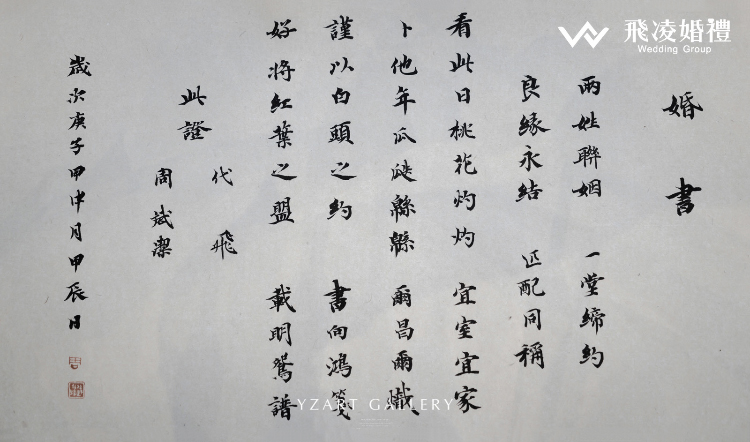 婚書
兩姓聯姻 一堂締約
良緣永結 匹配同稱
看此日桃花灼灼 宜室宜家
卜他年瓜瓞緜緜 爾昌爾熾
謹以白頭之約 書向鴻箋
好將紅葉之盟 載明鴛譜
此證
代飛
周斌潔
歲次庚子甲申月甲辰日
飛凌婚禮
Wedding Group
YZART GALLERY